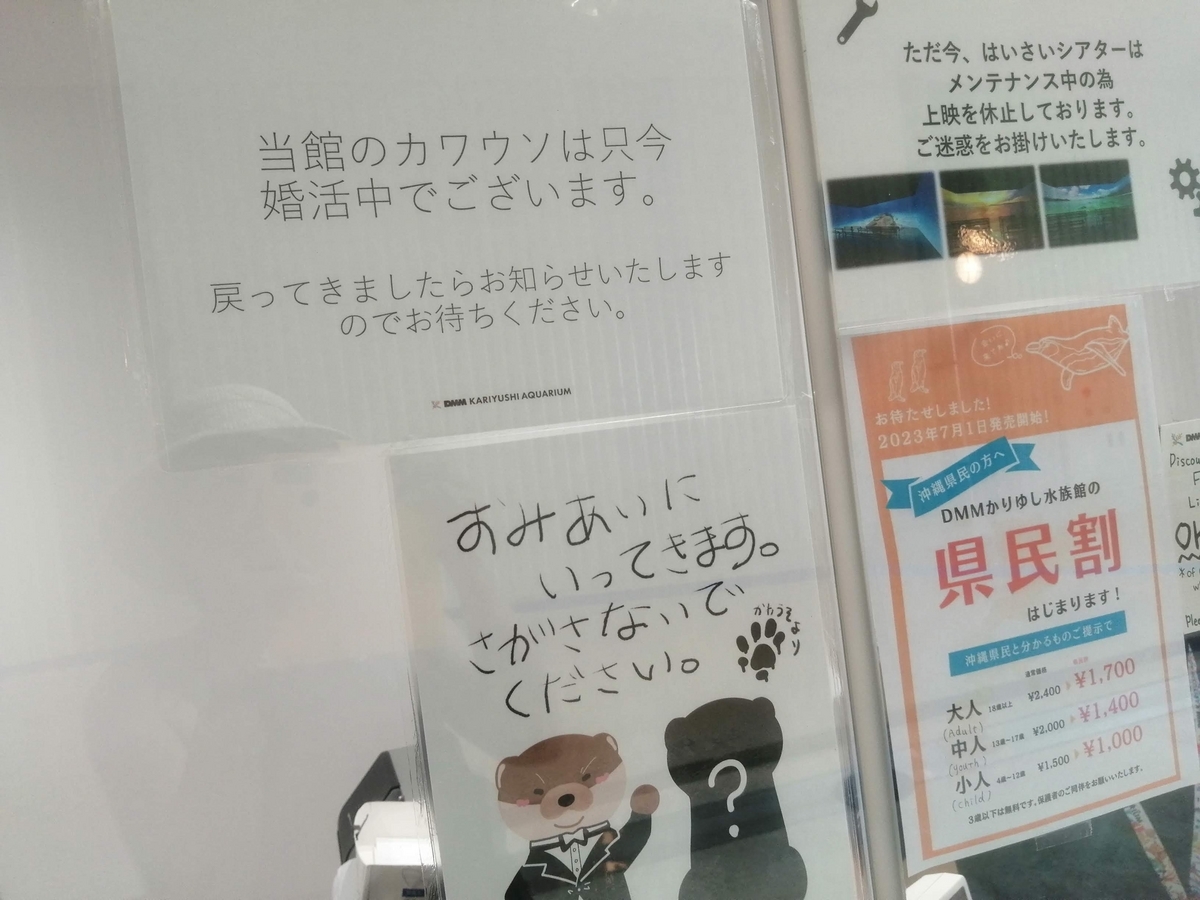 当館のカワウソは只今
婚活中でございます。
戻ってきましたらお知らせいたします
のでお待ちください。
DMM KARIYUSHI AQUARIUM
おみあいに
いってきます。
さがさないで
ください。
かわうそより
?
ただ今、はいさいシアターは
メンテナンス中の為
上映を休止しております。
ご迷惑をお掛けいたします。
お待たせしました!
2023年7月1日発売開始!
沖縄県民の方へ
DMMかりゆし水族館の
県民割
はじまります!
沖縄県民と分かるものご提示で
通常価格
大人 18歳以上 ¥2,400 ¥1,700
(Adult)
中人 13歳~17歳 ¥2,000 ¥1,400
(youth)
小人 4歳~12歳 ¥1,500 ¥1,000
(child)
3歳以下は無料です。保護者のご同伴をお願いいたします。
DMM